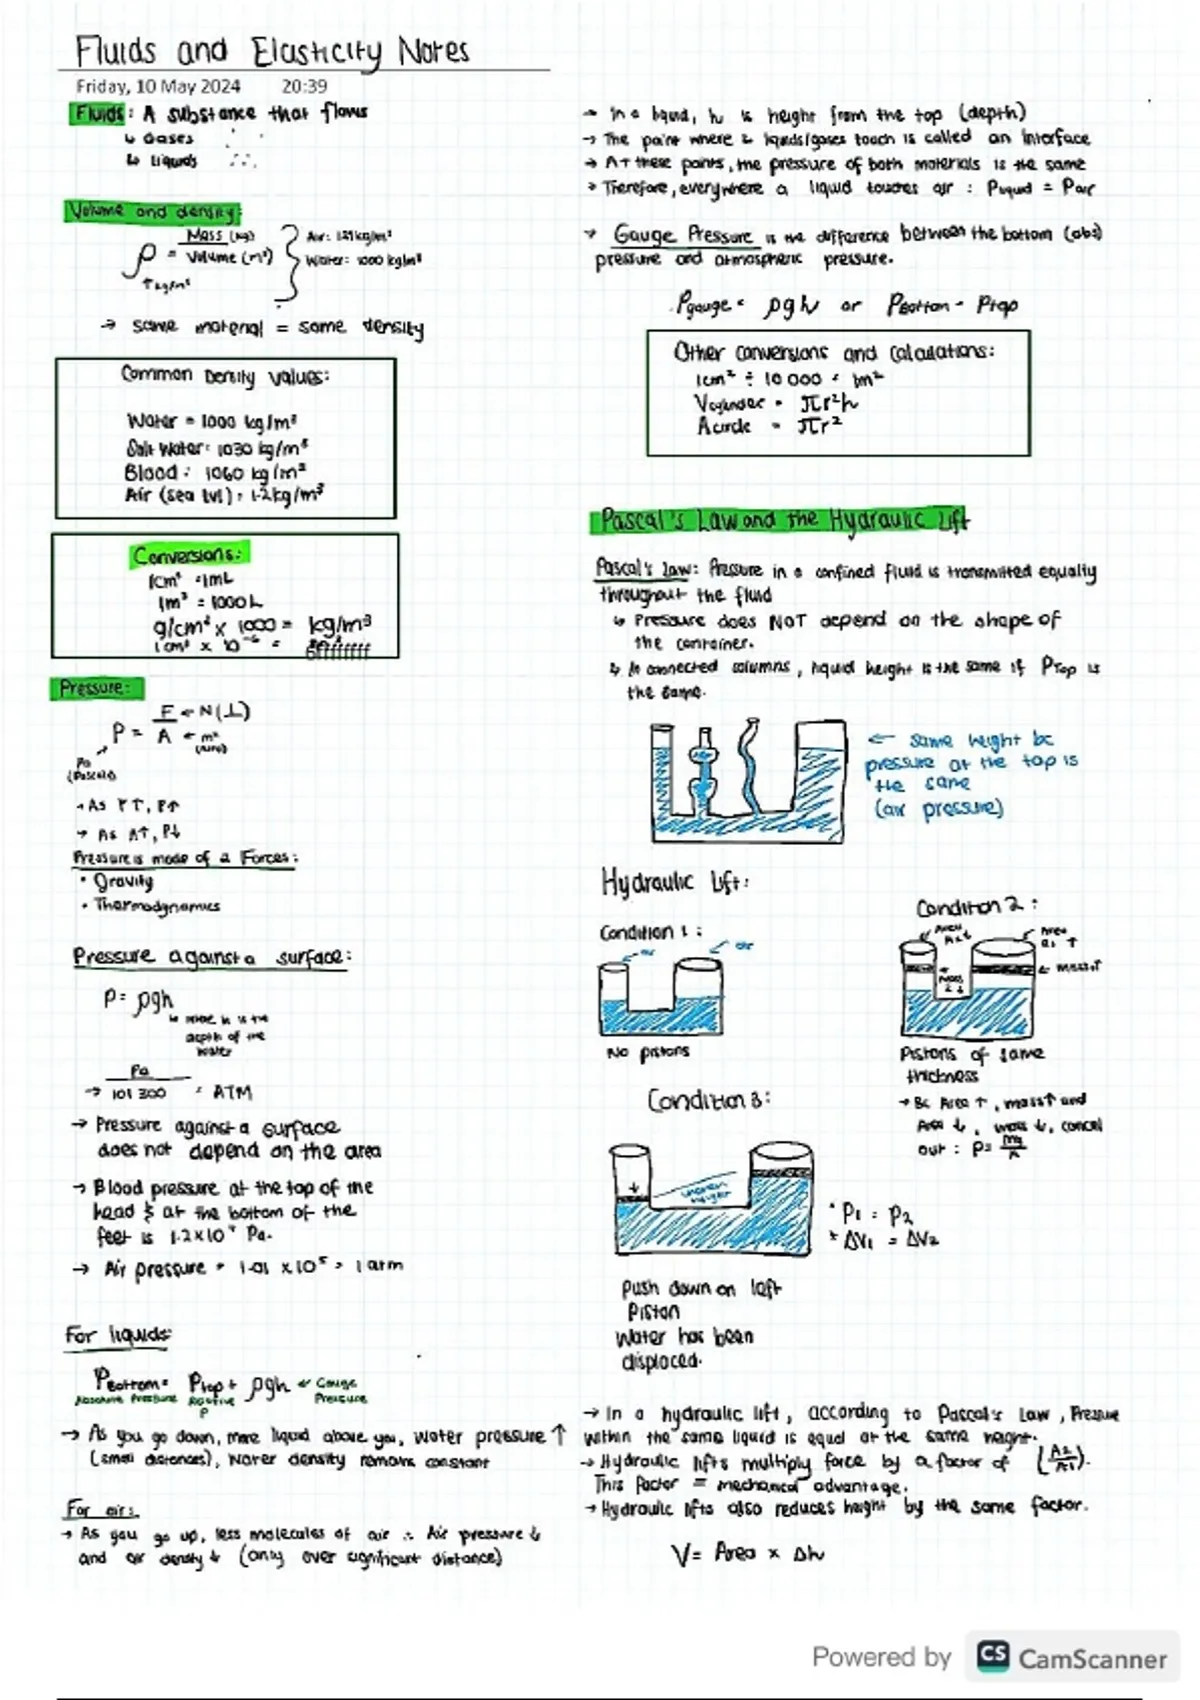 Fluids and Elasticity Notes
Friday, 10 May 2024 20:39
Fluids: A substance that flows
↳ Gases
↳ Liquids
Volume and density:
ρ = Mass (kg) / Volume (m³)
↑ kg/m³
Air: 1.21 kg/m³
Water: 1000 kg/m³
→ same material = same density
Common Density values:
Water = 1000 kg/m³
Salt Water: 1030 kg/m³
Blood: 1060 kg/m³
Air (sea lvl): 1.2 kg/m³
Conversions:
1cm³ = 1mL
1m³ = 1000L
g/cm³ x 1000 = kg/m³
1cm³ x 10⁻⁶ =
Pressure:
P = F / A
← N (⊥)
← m²
(area)
Pa
(Pascals)
→ As F↑, P↑
→ As A↑, P↓
Pressure is made of 2 Forces:
• Gravity
• Thermodynamics
Pressure against a surface:
P = ρgh
↳ where h is the
depth of the
water
→ Pa / 101 300 = ATM
→ Pressure against a surface
does not depend on the area
→ Blood pressure at the top of the
head & at the bottom of the
feet is 1.2x10⁴ Pa.
→ Air pressure = 1.01 x10⁵ = 1 atm
For liquids:
PBottom = Ptop + ρgh ← Gauge
Absolute Pressure Relative Pressure
P
→ As you go down, more liquid above you, water pressure ↑
(small distances), water density remains constant
For air:
→ As you go up, less molecules of air ∴ Air pressure ↓
and air density ↓ (only over significant distance)
→ In a liquid, h is height from the top (depth)
→ The point where 2 liquids/gases touch is called an interface
→ At these points, the pressure of both materials is the same
→ Therefore, everywhere a liquid touches air : Pliquid = Pair
→ Gauge Pressure is the difference between the bottom (abs)
pressure and atmospheric pressure.
Pgauge = ρgh or PBottom - Ptop
Other conversions and calculations:
1cm² ÷ 10 000 = 1m²
Vcylinder = πr²h
Acircle = πr²
Pascal's Law and the Hydraulic Lift
Pascal's Law: Pressure in a confined fluid is transmitted equally
throughout the fluid
↳ Pressure does NOT depend on the shape of
the container.
↳ In connected columns, liquid height is the same if PTop is
the same.
← same height bc
pressure at the top is
the same
(air pressure)
Hydraulic Lift:
Condition 1:
air
air
No pistons
Condition 2:
Area
A2↓
Area
a1 ↑
← mass↑
mass
2↓
Pistons of same
thickness
→ Bc Area ↑, mass↑ and
Area ↓, mass ↓, cancel
out : P = mg/A
Condition 3:
uneven
height
• P1 = P2
* ΔV1 = ΔV2
Push down on left
Piston
Water has been
displaced.
→ In a hydraulic lift, according to Pascal's Law, Pressure
within the same liquid is equal at the same height.
→ Hydraulic lifts multiply force by a factor of (A2/A1).
This factor = mechanical advantage.
→ Hydraulic lifts also reduces height by the same factor.
V = Area x Δh
Powered by CS CamScanner